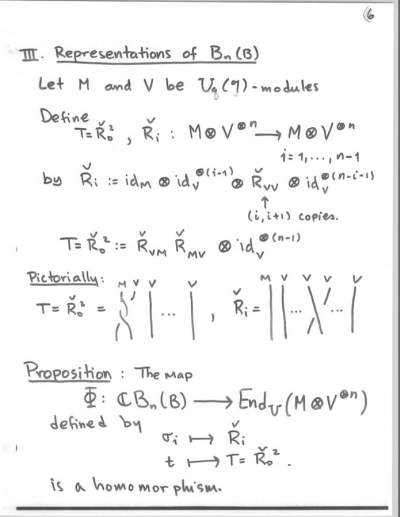 6
III. Representations of Bn(B)
Let M and V be Uq(g)-modules
Define
T=Ř₀², Řᵢ : M⊗V^⊗n → M⊗V^⊗n
i=1,...,n-1
by Řᵢ := id_M ⊗ id_V^⊗(i-1) ⊗ Ř_VV ⊗ id_V^⊗(n-i-1)
↑
(i,i+1) copies.
T=Ř₀² := Ř_VM Ř_MV ⊗ id_V^⊗(n-1)
Pictorially: M V V V M V V V V
T=Ř₀² = ... , Řᵢ = ... ...
Proposition: The map
Φ: ℂBn(B) → End_U(M⊗V^⊗n)
defined by
σᵢ ↦ Řᵢ
t ↦ T=Ř₀².
is a homomorphism.